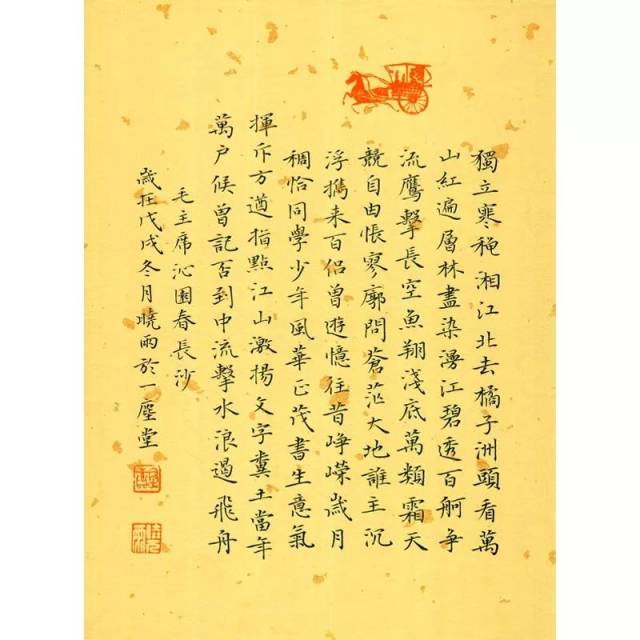 獨立寒穐湘江北去橘子洲頭看萬
山紅遍層林盡染湧江碧透百舸争
流鷹擊長空魚翔淺底萬類霜天
競自由悵寥廓問蒼茫大地誰主沉
浮攜来百侣曾遊憶往昔崢嶸歲月
稠恰同學少年風華正茂書生意氣
揮斥方遒指點江山激揚文字糞土當年
萬户侯曾記否到中流擊水浪遏飛舟
毛主席沁園春長沙
歲在戊戌冬月曉雨於一塵堂